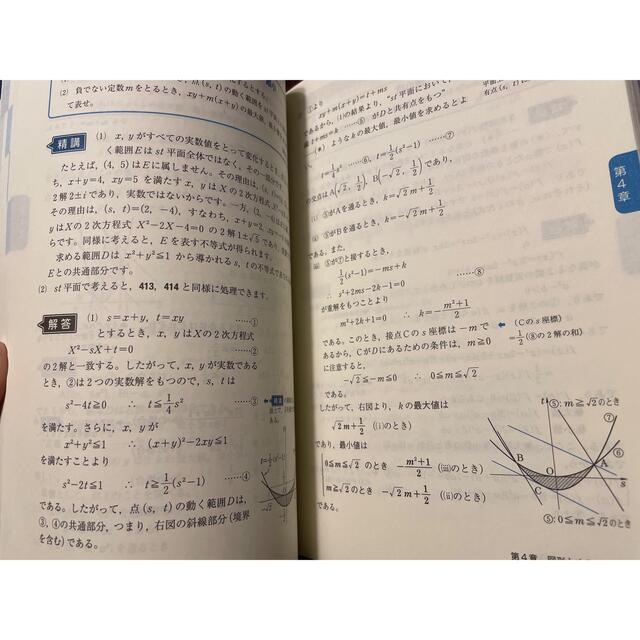 (2) 負でない定数mをとるとき, xy+m(x+y)の最大値, 最小値
て表せ.
精講
(1) x, yがすべての実数値をとって変化すると
く範囲Eはst平面全体ではなく, その一部
たとえば, (4, 5)はEに属しません. その理由は,
ち, x+y=4, xy=5 を満たす x, yはXの2次方程式
2解2±iであり, 実数ではないからです. 一方,
その理由は, (s, t)=(2, -4), すなわち, x+y=2,
yはXの2次方程式 X²-2X-4=0 の2解1±√5であり
らです. 同様に考えると, Eを表す不等式が得られます.
求める範囲Dは x²+y²≦1 から導かれるs, tの不等式で
Eとの共通部分です.
(2) st平面で考えると, 413, 414 と同様に処理できます.
解答
(1) s=x+y, t=xy ……①
とするとき, x, yはXの2次方程式
X²-sX+t=0 ……②
の2解と一致する. したがって, x, yが実数である
とき, ②は2つの実数解をもつので, s, tは
s²-4t≧0 ∴ t≦1/4s² ……③
を満たす. さらに, x, yが
x²+y²≦1 ∴ (x+y)²-2xy≦1
を満たすことより
s²-2t≦1 ∴ t≧1/2(s²-1) ……④
である. したがって, 点(s, t)の動く範囲Dは,
③, ④の共通部分, つまり, 右図の斜線部分(境界
を含む)である.
t=1/2(s²-1)
より
xy+m(x+y)=t+ms
であるから, (1)の結果より, “st平面において,
t+ms=k ……⑤ がDと共有点をもつ”
(*) ようなkの最大値, 最小値を求めるとよ
t=1/4s² ……⑥, t=1/2(s²-1) ……⑦
の交点はA(√2, 1/2), B(-√2, 1/2)であり,
(i) ⑤がAを通るとき, k=√2m+1/2
(ii) ⑤がBを通るとき, k=-√2m+1/2
である. また,
(iii) ⑤が⑦と接するとき,
1/2(s²-1)=-ms+k
∴ s²+2ms-2k-1=0 ……⑧
が重解をもつことより
m²+2k+1=0 ∴ k=-(m²+1)/2
である. このとき, 接点Cのs座標は-mで
あるから, CがDにあるための条件は, m≧0
に注意すると,
-√2≦-m≦0 ∴ 0≦m≦√2
(Cのs座標)
=1/2(⑧の2解の和)
したがって, 右図より, kの最大値は
√2m+1/2 ((i)のとき)
であり, 最小値は
0≦m≦√2 のとき -(m²+1)/2 ((iii)のとき)
m≧√2 のとき -√2m+1/2 ((ii)のとき)
である.
t
⑤: m≧√2のとき
⑦
⑥
B
O
A
s
C
⑤: 0≦m≦√2のとき
第4章
第4章